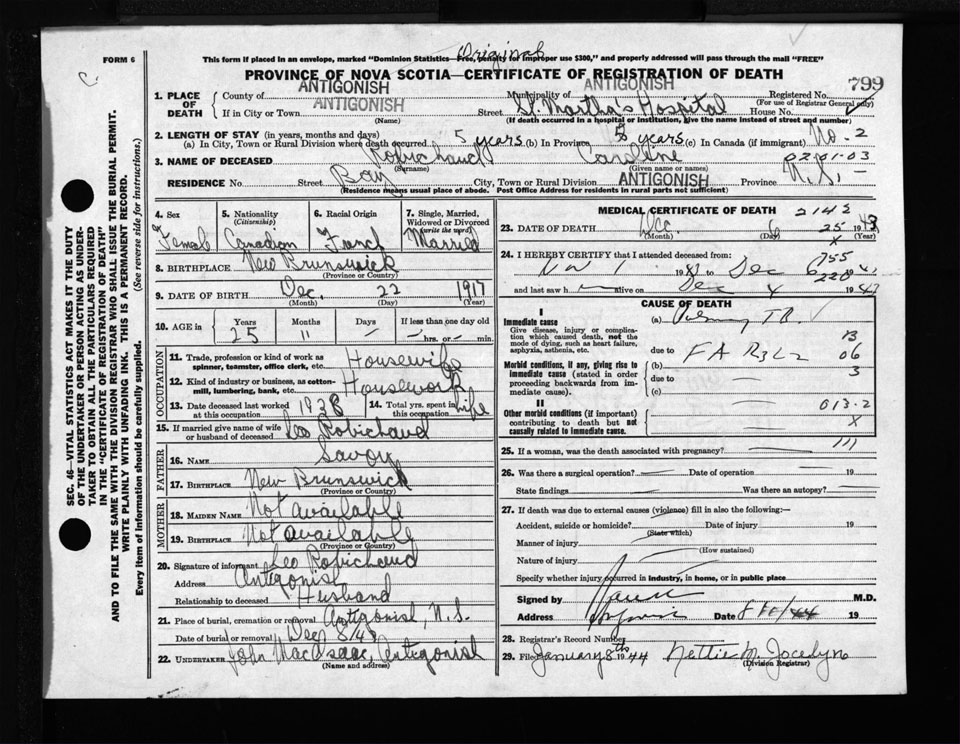 Original
FORM 6
This form if placed in an envelope, marked "Dominion Statistics—Free, penalty for improper use $300," and properly addressed will pass through the mail "FREE"
PROVINCE OF NOVA SCOTIA—CERTIFICATE OF REGISTRATION OF DEATH
799
1. PLACE OF DEATH County of ANTIGONISH Municipality of ANTIGONISH Registered No.
(For use of Registrar General only)
If in City or Town ANTIGONISH Street St. Martha's Hospital House No.
(Name) (If death occurred in a hospital or institution, give the name instead of street and number)
2. LENGTH OF STAY (in years, months and days)
(a) In City, Town or Rural Division where death occurred 5 years (b) In Province 5 years (c) In Canada (if immigrant) No. 2
02-01-03
3. NAME OF DECEASED Robichaud Caroline
(Surname) (Given name or names)
RESIDENCE No. Street Bay City, Town or Rural Division ANTIGONISH Province N.S. —
(Residence means usual place of abode. Post Office Address for residents in rural parts not sufficient)
4. Sex Female
5. Nationality (Citizenship) Canadian
6. Racial Origin French
7. Single, Married, Widowed or Divorced (write the word) Married
8. BIRTHPLACE New Brunswick
(Province or Country)
9. DATE OF BIRTH Dec. 22 1917
(Month) (Day) (Year)
10. AGE in Years 25 Months 11 Days — If less than one day old — hrs. or — min.
OCCUPATION
11. Trade, profession or kind of work as spinner, teamster, office clerk, etc. Housewife
12. Kind of industry or business, as cotton-mill, lumbering, bank, etc. Housework
13. Date deceased last worked at this occupation 1938
14. Total yrs. spent in this occupation life
15. If married give name of wife or husband of deceased Leo Robichaud
FATHER
16. NAME Savoy
17. BIRTHPLACE New Brunswick
(Province or Country)
MOTHER
18. MAIDEN NAME Not available
19. BIRTHPLACE Not available
(Province or Country)
20. Signature of informant Leo Robichaud
Address Antigonish
Relationship to deceased Husband
21. Place of burial, cremation or removal Antigonish, N.S.
Date of burial or removal Dec 8/43
22. UNDERTAKER John MacIsaac, Antigonish
(Name and address)
MEDICAL CERTIFICATE OF DEATH 2142
23. DATE OF DEATH Dec. 6 25 1943
(Month) (Day) X (Year)
24. I HEREBY CERTIFY that I attended deceased from:
755
to Dec 6 220 1943
and last saw h alive on Dec 4 1943
CAUSE OF DEATH
I
Immediate cause
Give disease, injury or complication which caused death, not the mode of dying, such as heart failure, asphyxia, asthenia, etc.
(a) Pulmonary TB.
due to FA R3L2
13
06
3
Morbid conditions, if any, giving rise to immediate cause (stated in order proceeding backwards from immediate cause).
(b)
due to
(c)
II
Other morbid conditions (if important) contributing to death but not causally related to immediate cause.
013-2
X
25. If a woman, was the death associated with pregnancy?
26. Was there a surgical operation? — Date of operation — 19
State findings Was there an autopsy? —
27. If death was due to external causes (violence) fill in also the following:—
Accident, suicide or homicide? Date of injury 19
(State which)
Manner of injury
(How sustained)
Nature of injury
Specify whether injury occurred in industry, in home, or in public place
Signed by M.D.
Address Date 19
28. Registrar's Record Number
29. Filed January 8th 1944 Nettie M. Jocelyn
(Division Registrar)
SEC. 46—VITAL STATISTICS ACT MAKES IT THE DUTY
OF THE UNDERTAKER OR PERSON ACTING AS UNDERTAKER TO OBTAIN ALL THE PARTICULARS REQUIRED
IN THE "CERTIFICATE OF REGISTRATION OF DEATH"
AND TO FILE THE SAME WITH THE DIVISION REGISTRAR WHO SHALL ISSUE THE BURIAL PERMIT.
WRITE PLAINLY WITH UNFADING INK. THIS IS A PERMANENT RECORD.
Every item of information should be carefully supplied. (See reverse side for instructions.)